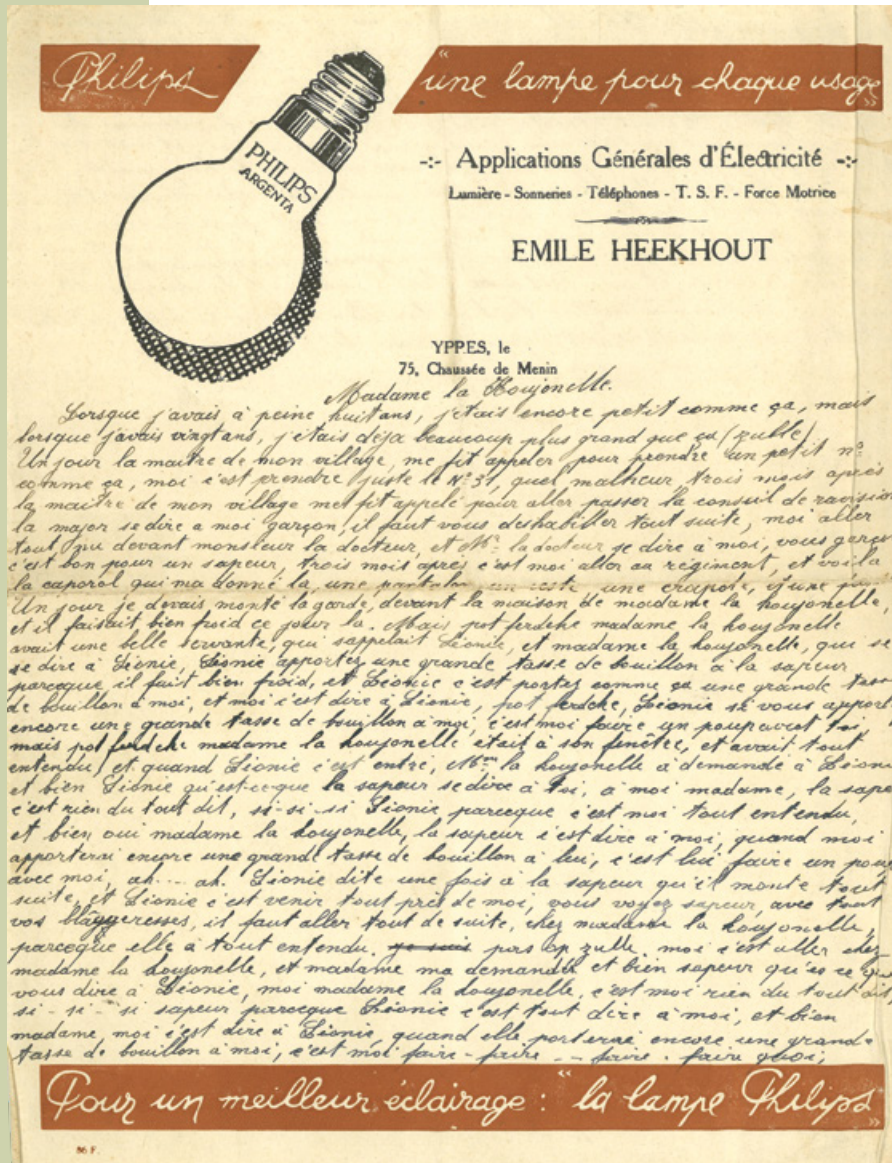 Philips
"une lampe pour chaque usage"
PHILIPS
ARGENTA
-:- Applications Générales d'Électricité -:-
Lumière - Sonneries - Téléphones - T. S. F. - Force Motrice
EMILE HEEKHOUT
YPPES, le
75, Chaussée de Menin
Madame la Houjonelle.
Lorsque j'avais à peine huit ans, j'étais encore petit comme ça, mais
lorsque j'avais vingt ans, j'étais déja beaucoup plus grand que ça (zulle)
Un jour la maitre de mon village, me fit appeler pour prendre un petit n°
comme ça, moi c'est prendre juste le N° 31, quel malheur trois mois après
la maitre de mon village met fit appelé pour aller passer la conseil de ravision
la major se dire a moi garçon, il faut vous deshabiller tout suite, moi aller
tout nu devant monsieur la docteur, et Mr la docteur se dire à moi, vous garçon
c'est bon pour un sapeur, trois mois après c'est moi aller au régiment, et voila
la caporol qui ma donné la, une une crapote, d'une
Un jour je devais monté la garde, devant la maison de madame la houjonelle,
et il faisait bien froid ce jour la. Mais pot ferdeke madame la houjonelle
avait une belle servante, qui s'appelait Lionie, et madame la houjonelle, qui se
se dire à Lionie, Lionie apportez une grande tasse de bouillon à la sapeur
parceque il fait bien froid, et Léonie c'est portez comme ça une grande tasse
de bouillon à moi, et moi c'est dire à Lionie, pot ferdeke, Lionie si vous apport
encore une grande tasse de bouillon à moi, c'est moi faire un poup avect toi,
mais pot ferdeke madame la houjonelle était à son fenêtre, et avait tout
entendu, et quand Lionie c'est entré, Mme la houjonelle à demandé à Lionie
et bien Lionie qu'est-ce-que la sapeur se dire à toi, a moi madame, la sape
c'est rien du tout dit, si-si-si Lionie, parceque c'est moi tout entendu,
et bien oui madame la houjonelle, la sapeur c'est dire à moi, quand moi
apporterai encore une grande tasse de bouillon à lui, c'est lui faire un poup
avec moi, ah... ah. Lionie dite une fois à la sapeur qu'il monte tout
suite, et Lionie c'est venir tout près de moi, vous voyez sapeur, avec tout
vos blâggeresses, il faut aller tout de suite, chez madame la houjonelle,
parceque elle à tout entendu. pas op zulle, moi c'est aller chez
madame la houjonelle, et madame ma demandé et bien sapeur qu'es ce que
vous dire à Lionie, moi madame la houjonelle, c'est moi rien du tout dit
si - si - si sapeur parceque Léonie c'est tout dire à moi, et bien
madame, moi c'est dire à Lionie, quand elle porterai encore une grande
tasse de bouillon à moi, c'est moi faire - faire - - faire - faire quoi,
Pour un meilleur éclairage : "la lampe Philips"
86 F.